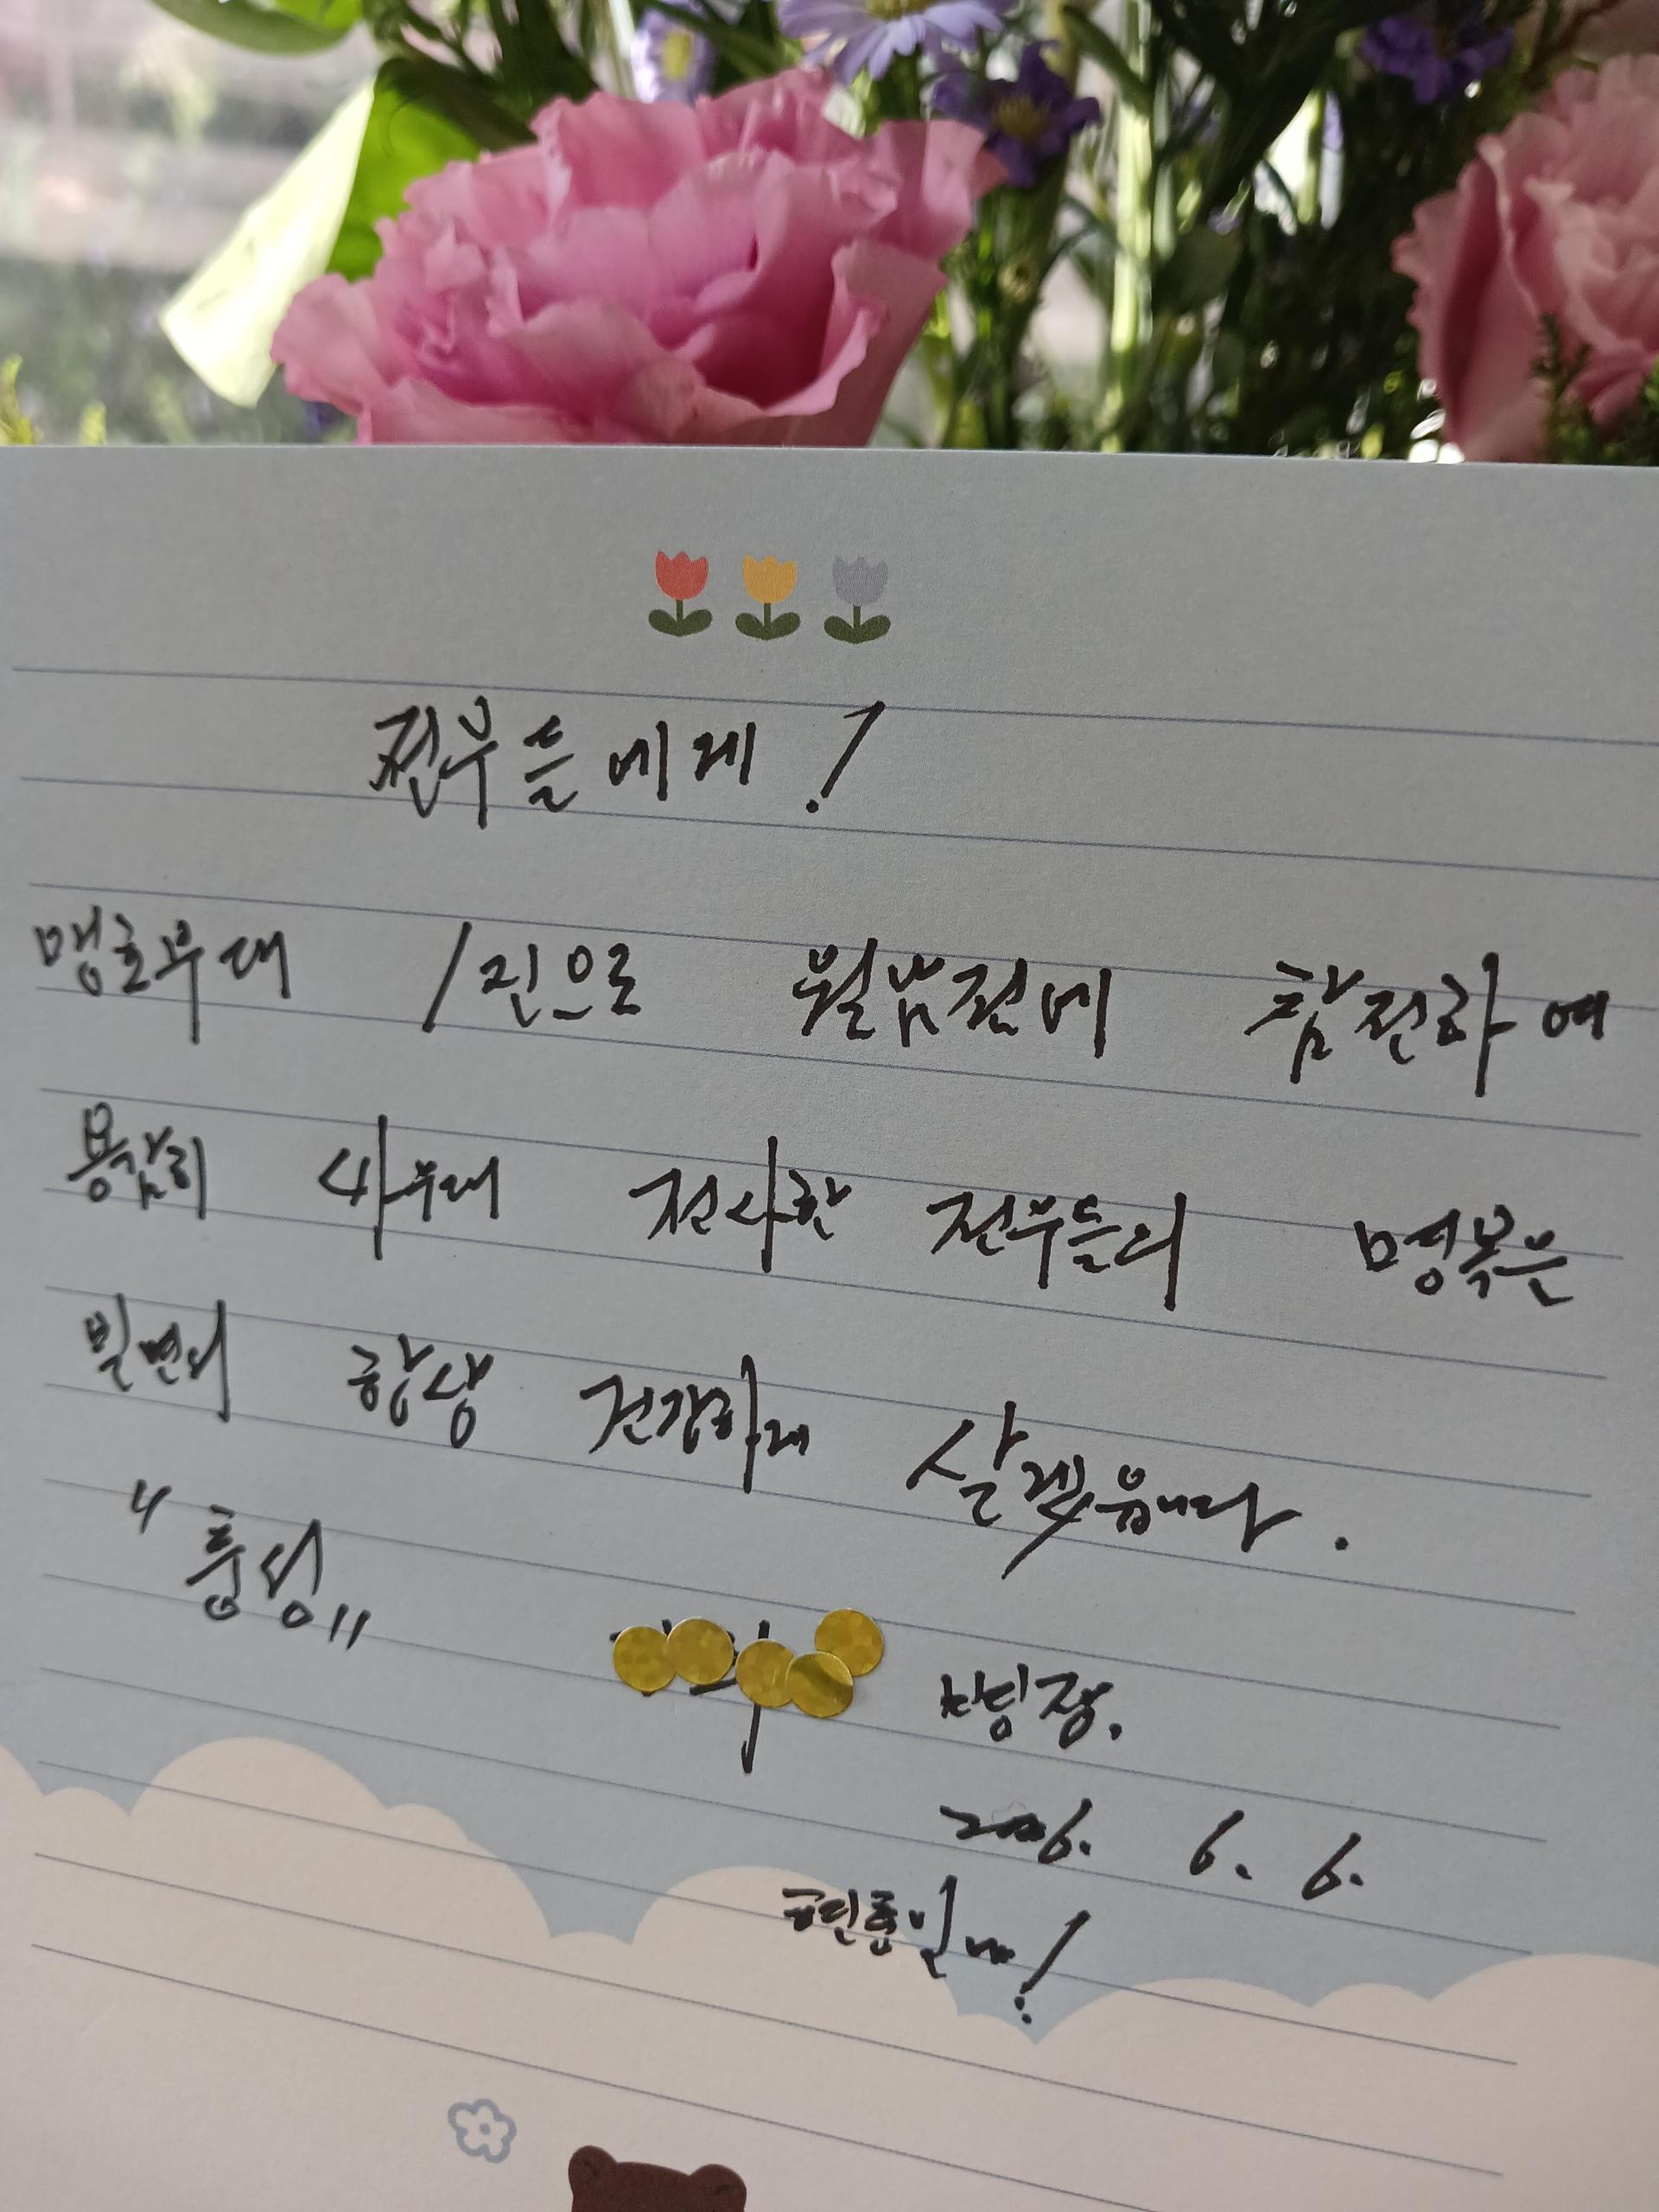 전우들에게!
맹호부대 1진으로 월남전에 참전하여
용감히 싸우다 전사한 전우들의 명복을
빌면서 항상 건강하게 살겠읍니다.
"충성"
병장.
2026. 6. 6.
현충일에!